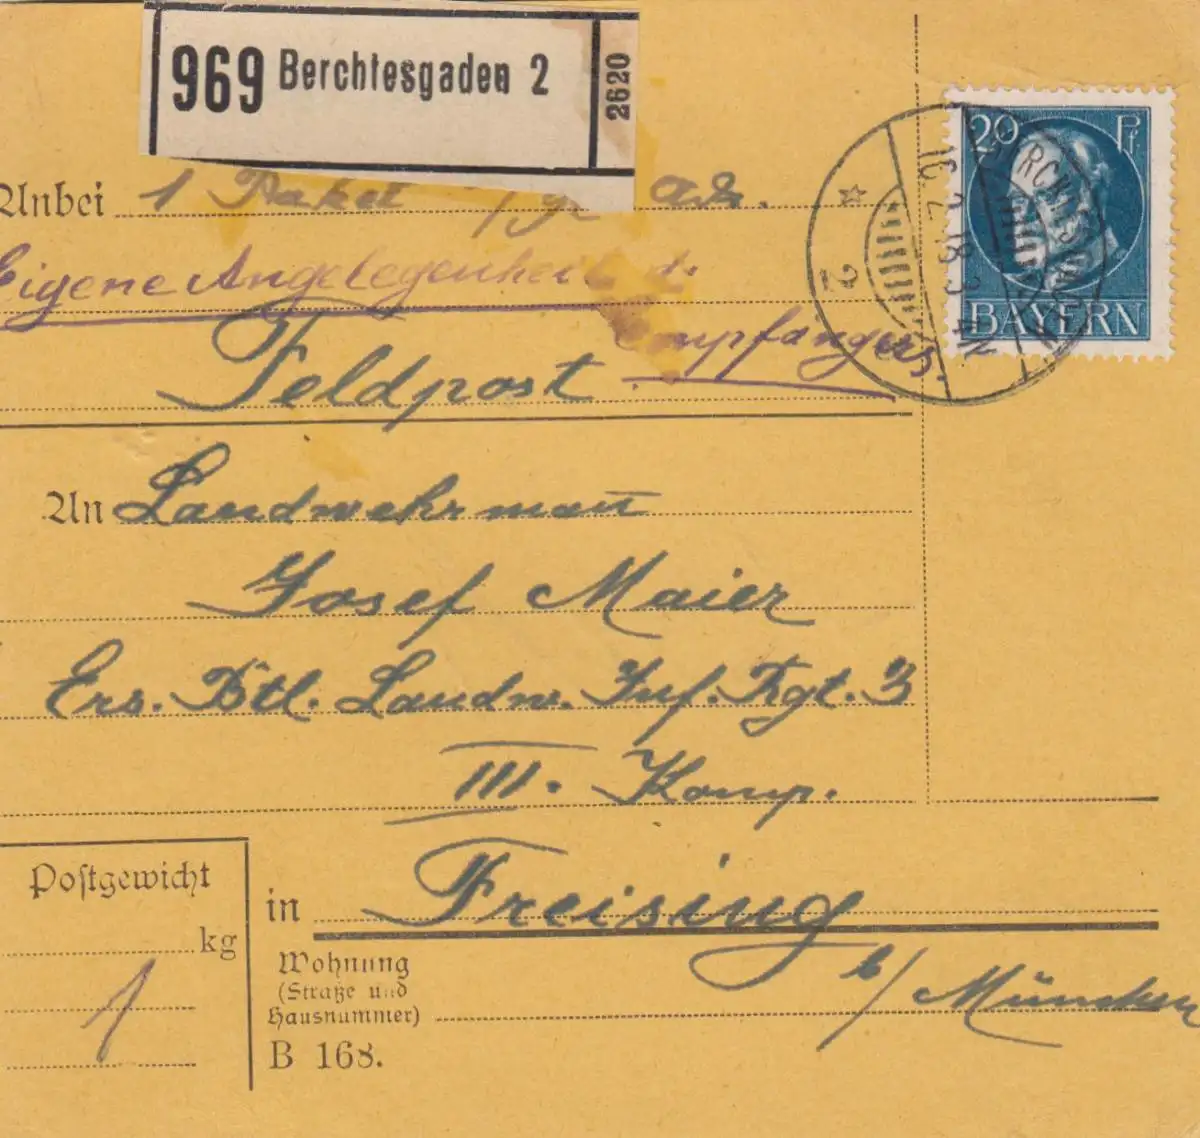 969 Berchtesgaden 2
2620
20 Pf
BAYERN
16.2.18.3-4N
2
Anbei 1 Paket
Eigene Angelegenheit d.
Empfängers.
Feldpost
An Landwehrmann
Josef Maier
Ers. Btl. Landw. Inf. Rgt. 3
III. Komp.
Postgewicht
kg
1
in Freising
b/München
Wohnung
(Straße und
Hausnummer)
B 168.